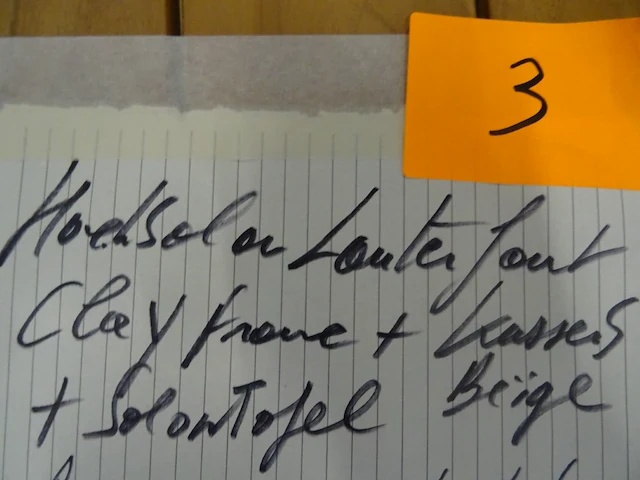 3
Hoek Salon Lauter fout
Clay frame + kussens
+ Salontafel Beige